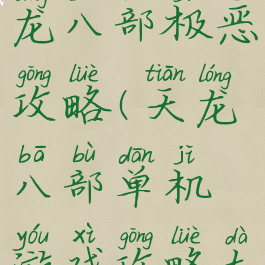 龙八部极恶
gōng lüè tiān lóng
攻略(天龙
bā bù dān jī
八部单机
yóu xì gōng lüè dà
游戏攻略大